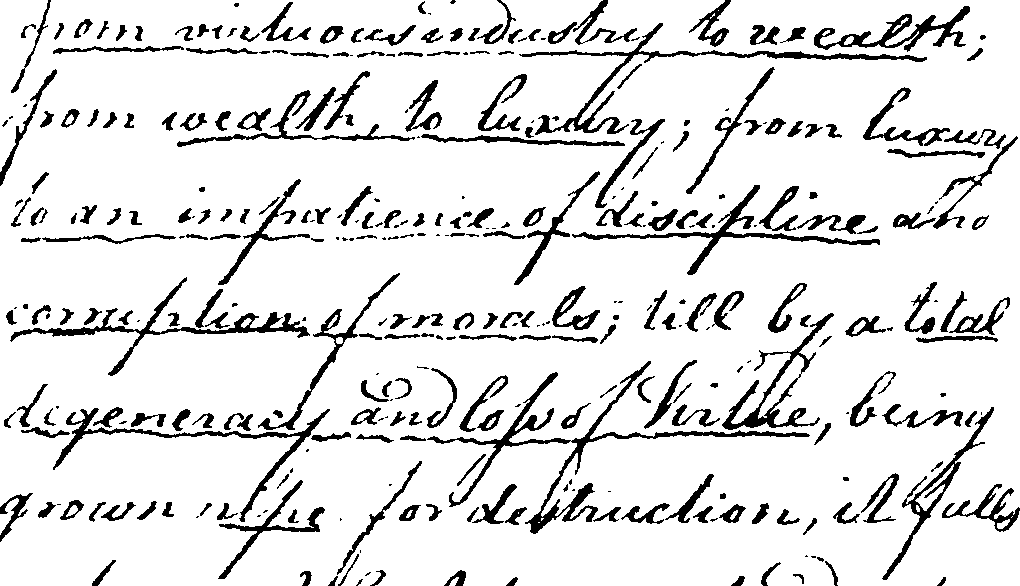 from virtuous industry to wealth;
from wealth, to luxury; from luxury
to an impatience of discipline and
corruption of morals; till by a total
degeneracy and loſs of Virtue, being
grown ripe for destruction, it falls